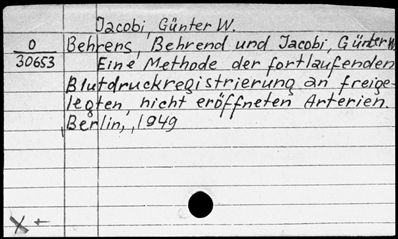 Jacobi, Günter W.
O Behrens, Behrend und Jacobi, Günter W.
30653 Eine Methode der fortlaufenden
Blutdruckregistrierung an freige-
legten, nicht eröffneten Arterien.
Berlin, 1949
X ←